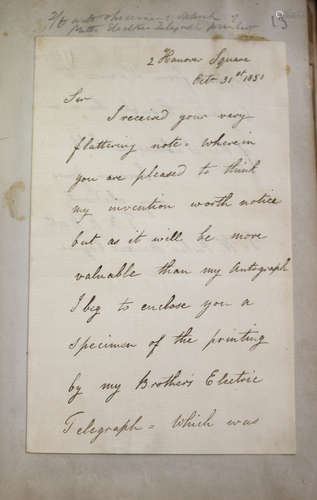 13
2 Hanover Square
Octr 31st 1851
Sir
I received your very
flattering note = wherein
you are pleased to think
my invention worth notice
but as it will be more
valuable than my Autograph
I beg to enclose you a
specimen of the printing
by my Brothers Electric
Telegraph = Which was